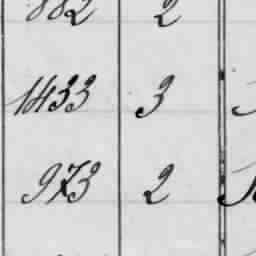 882 2
1433 3
973 2